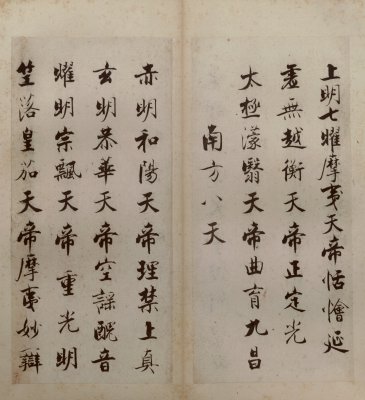 上明七曜摩夷天帝恬懀延
虛無越衡天帝正定光
太極濛翳天帝曲育九昌
南方八天
赤明和陽天帝理禁上真
玄明恭華天帝空謠醜音
曜明宗飄天帝重光明
竺落皇笳天帝摩夷妙辯